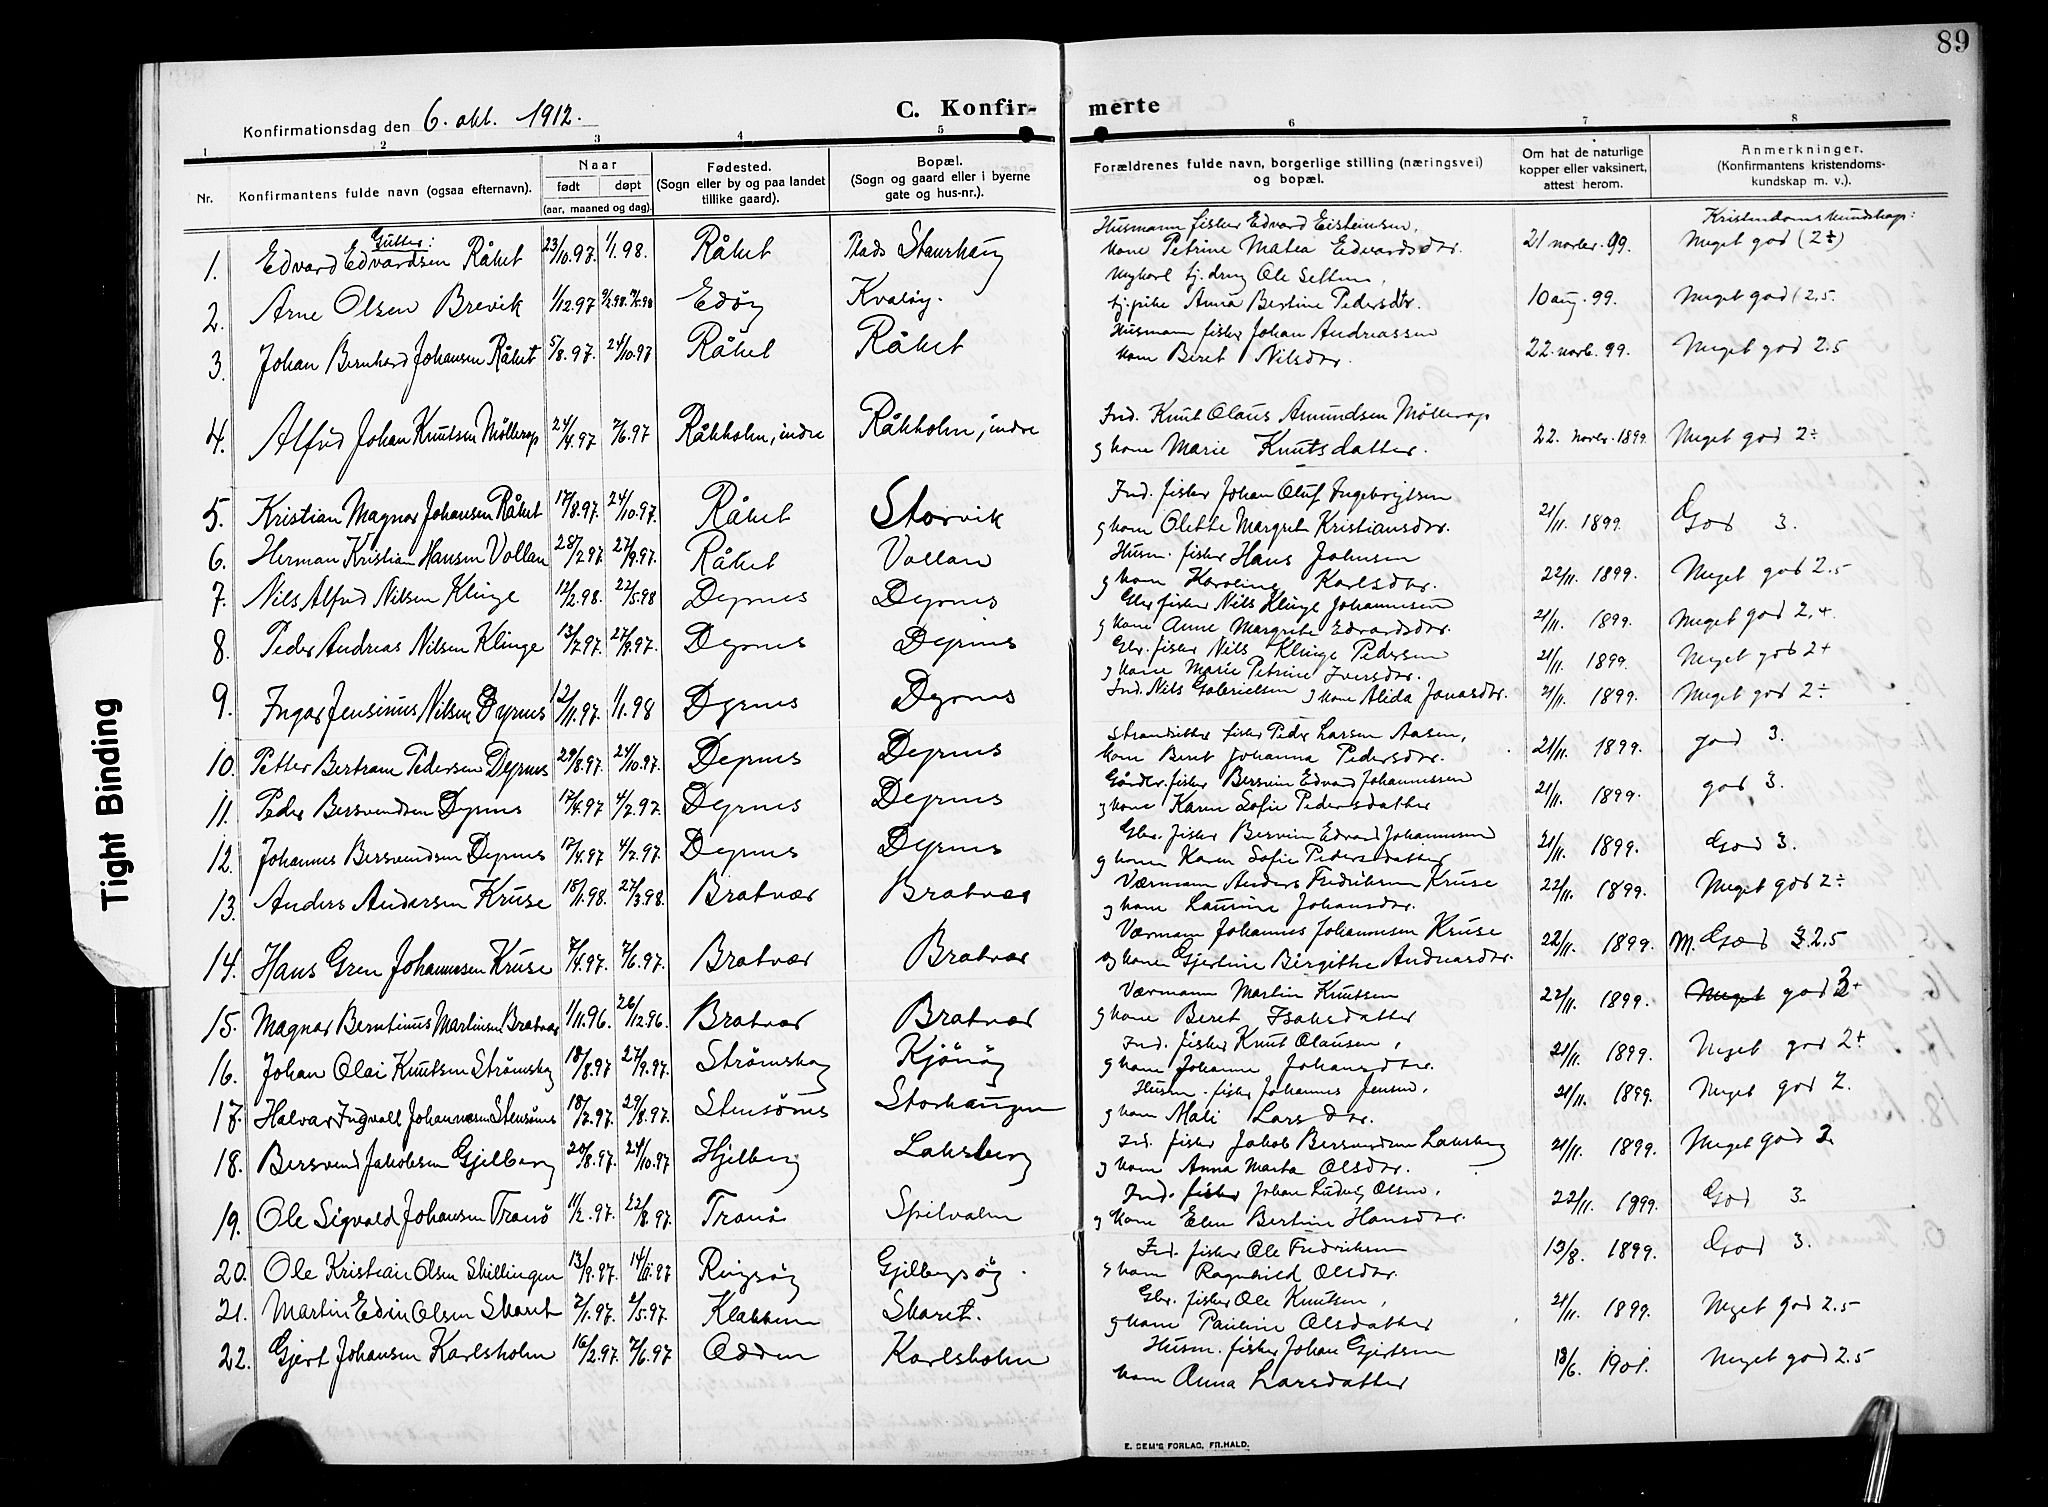 89
Konfirmationsdag den 6. okt. 1912.
C. Konfir-merte
1 2 3 4 5 6 7 8
Nr.
Konfirmantens fulde navn (ogsaa efternavn).
Naar
født døpt
(aar, maaned og dag).
Fødested.
(Sogn eller by og paa landet
tillike gaard).
Bopæl.
(Sogn og gaard eller i byerne
gate og hus-nr.).
Forældrenes fulde navn, borgerlige stilling (næringsvei)
og bopæl.
Om hat de naturlige
kopper eller vaksinert,
attest herom.
Anmerkninger.
(Konfirmantens kristendoms-
kundskap m. v.).
Gutter:
Kristendomskundskap:
1. Edvard Edvardsen Råket 23/10.97. 1/1.98. Råket Plads Staurhaug Husmann fisker Edvard Eisteinsen,
kone Petrine Matea Edvardsdtr. 21 novbr. 99. Meget god (2÷)
2. Arne Olsen Brevik 1/12.97 Edøy Kvaløy. Ungkarl tj. dreng Ole
tj. pike Anna Bertine Pedersdtr. 10 aug. 99. Meget god (2.5.
3. Johan Bernhard Johansen Råket 5/8.97. 24/10.97 Råket Råket Husmann fisker Johan Andreassen
kone Beret Nilsdtr. 22. novb. 99. Meget god 2.5
4. Alfred Johan Knutsen Møllerop 24/4.97 7/6.97 Råkholm, indre Råkholm, indre Ind. Knut Olaus Amundsen Møllerop
og kone Marie Knutsdatter. 22. novbr. 1899. Meget god 2÷
5. Kristian Magnar Johansen Råket 17/8.97. 24/10.97. Råket Storvik Ind. fisker Johan Oluf Ingebrigtsen
og kone Olette Margret Kristiansdtr. 21/11. 1899. God 3.
6. Herman Kristian Hansen Vollan 28/7.97 27/9.97. Råket Vollan Husm. fisker Hans Johnsen
og kone Karoline Karlsdtr. 22/11. 1899. Meget god 2.5
7. Nils Alfred Nilsen Klinge 12/2.98. 22/5.98 Dyrnes Dyrnes Gbr. fisker Nils Klinge Johannesen
og kone Anne Margrete Edvardsdtr. 21/11. 1899. Meget god 2.+
8. Peder Andreas Nilsen Klinge 13/7.97. 27/9.97. Dyrnes Dyrnes Gbr. fisker Nils Klinge Pedersen
og kone Marie Petrine Iversdtr. 21/11. 1899. Meget god 2+
9. Ingar Jensinus Nilsen Dyrnes 12/11.97. 1/1.98 Dyrnes Dyrnes Ind. Nils Gabrielsen og kone Alida Jonasdtr. 21/11. 1899. Meget god 2÷
10. Petter Bertram Pedersen Dyrnes 29/8.97. 24/10.97. Dyrnes Dyrnes Strandsitter fisker Peder Larsen Aasen,
kone Beret Johanna Pedersdtr. 21/11. 1899. god 3.
11. Peder Bersvendsen Dyrnes 17/4.97 4/7.97. Dyrnes Dyrnes Gårdbr. fisker Bersvein Edvard Johannessen
og kone Karen Sofie Pedersdatter 21/11. 1899. god 3.
12. Johannes Bersvendsen Dyrnes 17/4.97 4/7.97. Dyrnes Dyrnes Gbr. fisker Bersvein Edvard Johannesen
og kone Karen Sofie Pedersdatter 21/11. 1899. God 3.
13. Anders Andersen Kruse 18/1.98. 27/3.98. Bratvær Bratvær Værmann Anders Fredriksen Kruse
og kone Laurine Johansdtr. 22/11. 1899. Meget god 2÷
14. Hans Gren Johannesen Kruse 7/4.97. 7/6.97. Bratvær Bratvær Værmann Johannes Johannesen Kruse
og kone Gjertine Birgitte Andreasdtr. 22/11. 1899. M. God 3. 2.5
15. Magnar Berntinus Martinsen Bratvær 1/11.96. 26/12.96. Bratvær Bratvær Værmann Martin Knutsen
og kone Beret Isaksdatter 22/11. 1899. Meget god 3+
16. Johan Olai Knutsen Strømskag 18/8.97 27/9.97. Strømskag Kjønøy Ind. fisker Knut Olausen,
og kone Johanne Johansdtr. 21/11. 1899. Meget god 2+
17. Halvar Ingvall Johannesen Stensønes 18/7.97. 29/8.97. Stensønes Storhaugen Husm. fisker Johannes Jensen,
og kone Mali Larsdtr. 21/11. 1899. Meget god 2.
18. Bersvend Jakobsen Gjelberg 20/8.97. 24/10.97. Hjelberg Laksberg Ind. fisker Jakob Bersvendsen Laksberg
og kone Anna Marta Olsdtr. 21/11. 1899. Meget god 2.
19. Ole Sigvald Johansen Tranø 11/2.97. 22/8.97. Tranø Spilvalen Ind. fisker Johan Ludvig Olsen,
og kone Elen Bertine Hansdtr. 22/11. 1899. God 3.
20. Ole Kristian Olsen Skillingen 13/9.97. 14/11.97 Ringsøy Gjelbergsøy. Ind. fisker Ole Fredriksen
og kone Ragnhild Olsdtr. 13/8. 1899. God 3.
21. Martin Edin Olsen Skaret 2/1.97. 2/5.97 Klakken Skaret. Gbr. fisker Ole Knutsen,
og kone Pauline Olsdatter 21/11. 1899. Meget god 2.5
22. Gjert Johansen Karlsholm 16/2.97. 7/6.97 Odden Karlsholm Husm. fisker Johan Gjertsen
kone Anna Larsdatter 18/6. 1901. Meget god 2.5
E. SEM'S FORLAG, FR.HALD.
Tight Binding